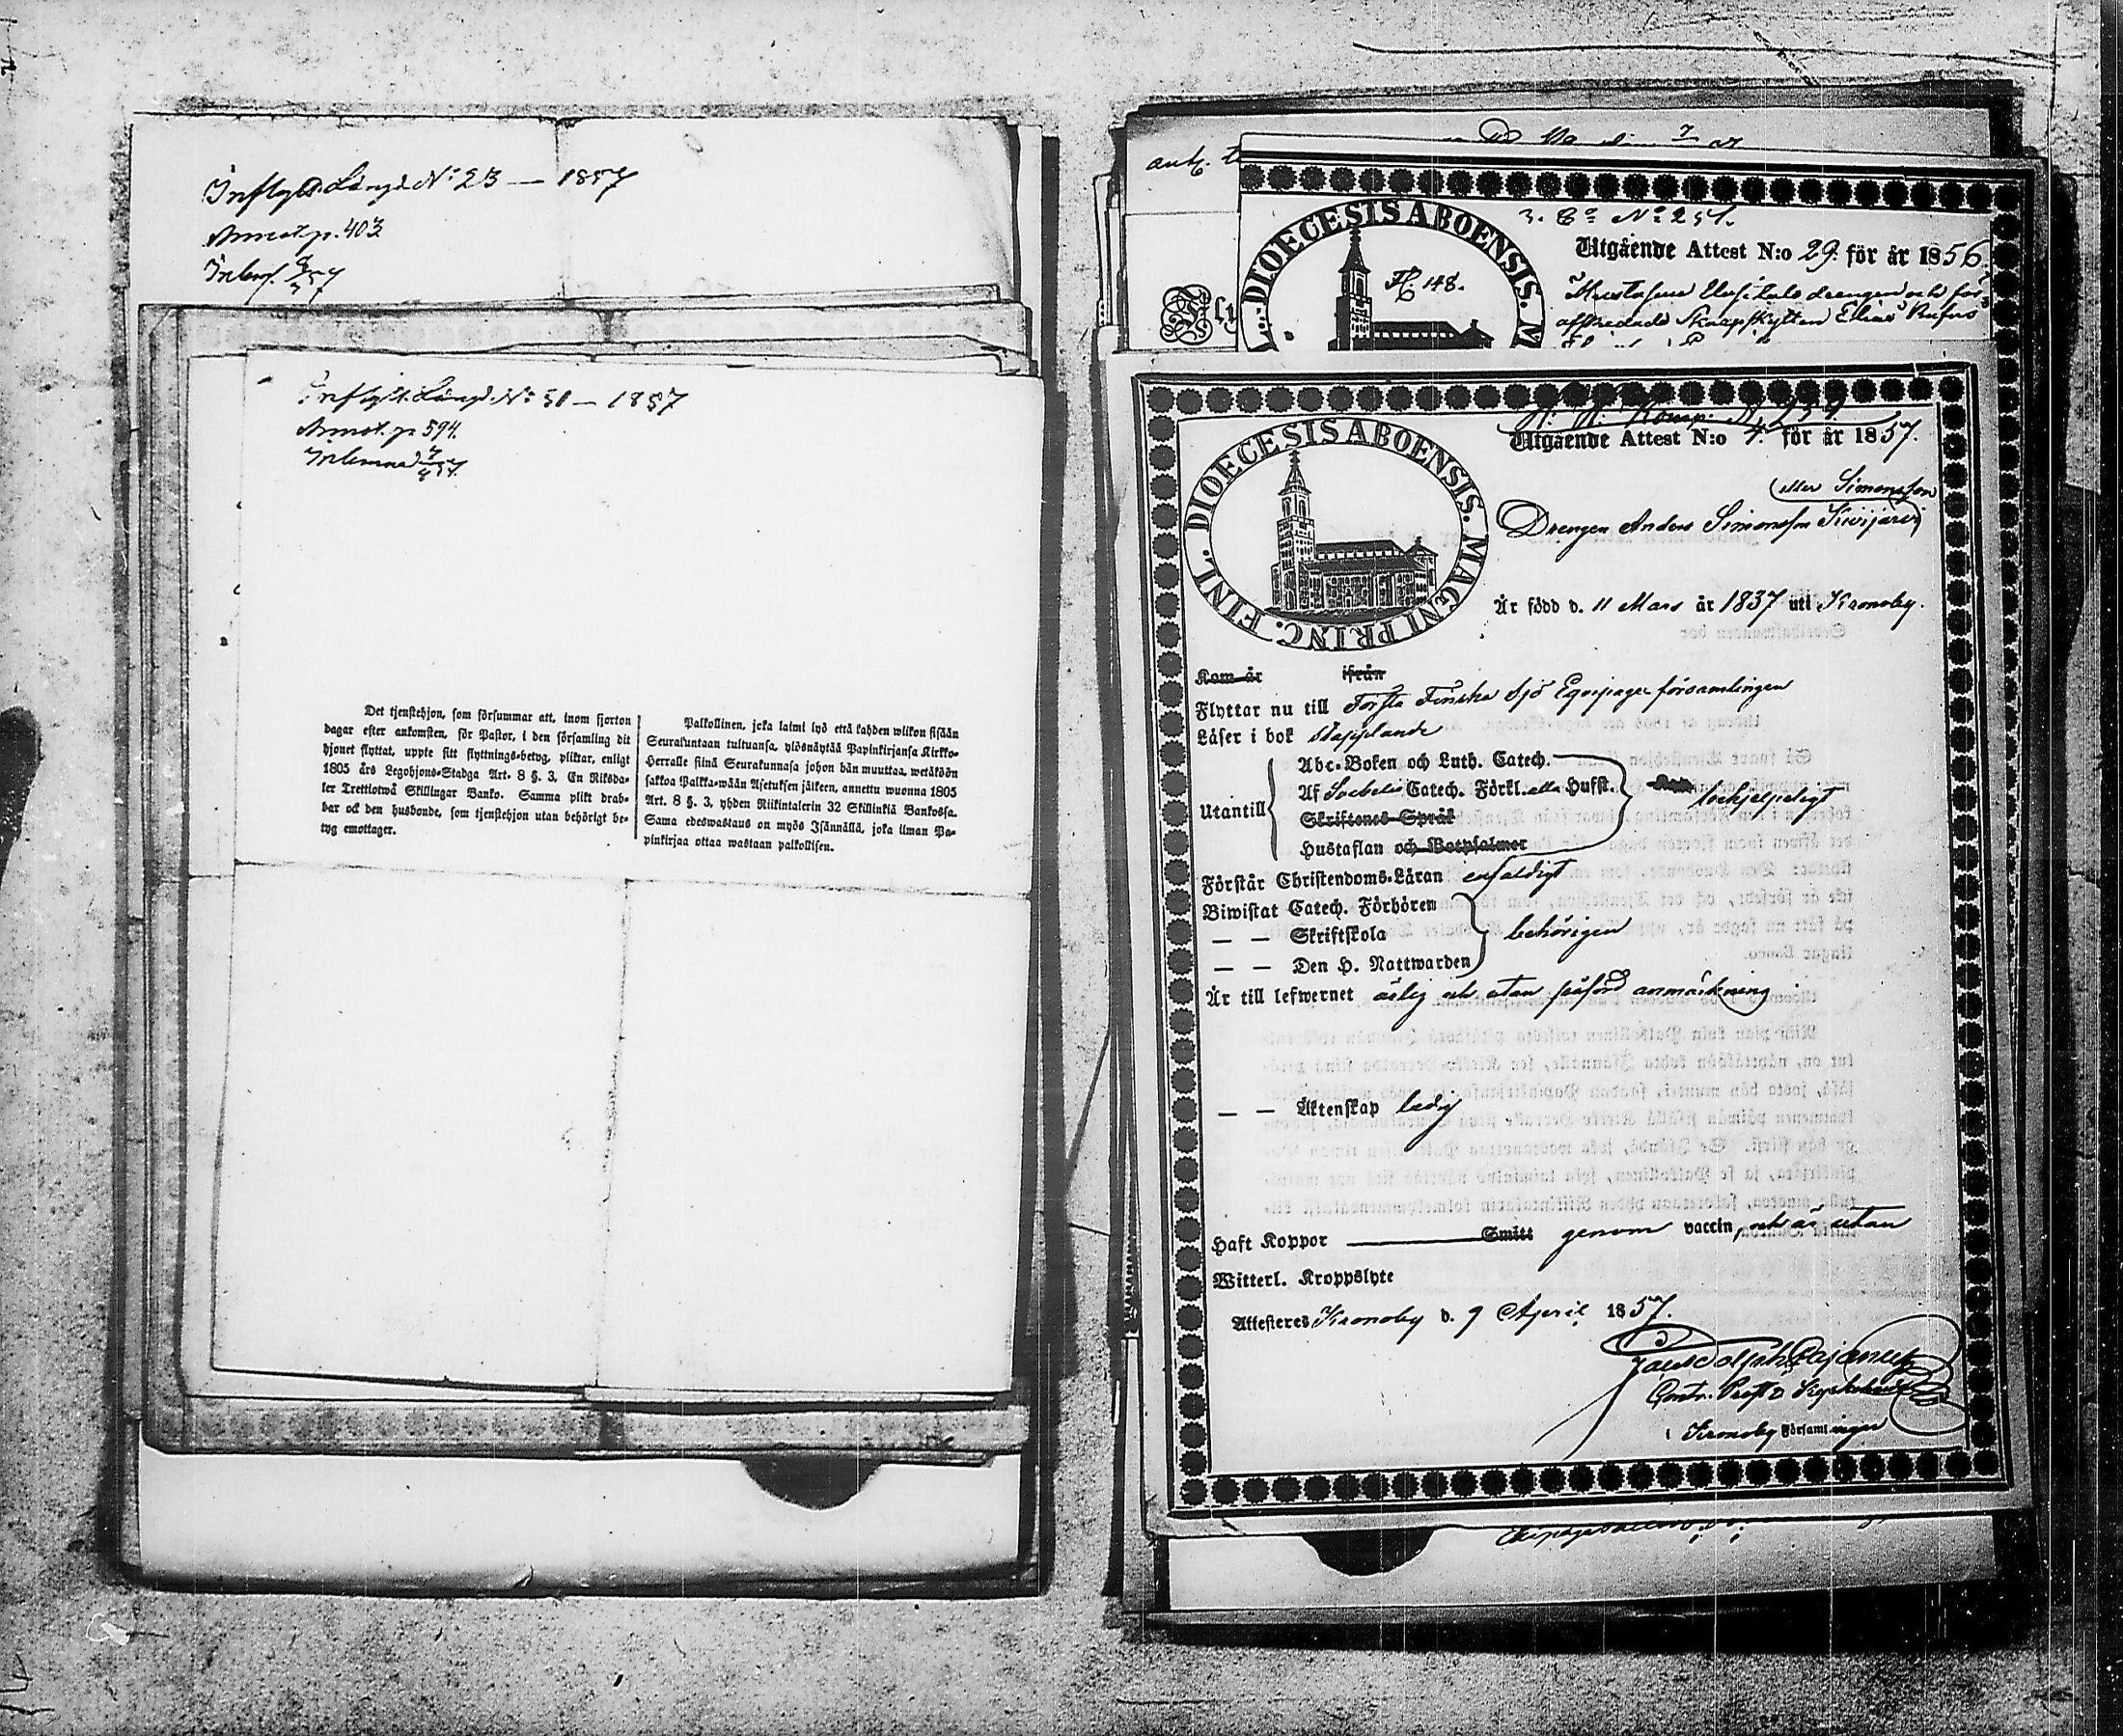 Inflytt Längd N:o 23 — 1857
Annot. p. 403.
Inflytt. Längd N:o 51 — 1857
Annot. p. 594.
Inlemnad
Det tjenstehjon, som försummar att, inom fjorton
dagar efter ankomsten, för Pastor, i den församling dit
hjonet flyttat, uppte sitt flyttnings-betyg, pliktar, enligt
1805 års Legohjons-Stadga Art. 8 §. 3, En Riksda-
ler Trettiotwå Skillingar Banko. Samma plikt drab-
bar ock den husbonde, som tjenstehjon utan behörigt be-
tyg emottager.
Palkollinen, joka laimi lyö että kahden wiikon sisään
Seurakuntaan tultuansa, ylösnäytää Papinkirjansa Kirkko-
Herralle siinä Seurakunnasa johon hän muuttaa, wetäköön
sakkoa Palkka-wään Asetuksen jälkeen, annettu wuonna 1805
Art. 8 §. 3, yhden Riikintalerin 32 Skillinkiä Bankossa.
Sama edeswastaus on myös Isännällä, joka ilman Pa-
pinkirjaa ottaa wastaan palkollisen.
DIOECESIS ABOENSIS. M
3. C:o N:o 251.
Utgående Attest N:o 29. för år 1856.
drengen och för
afskedade Skarpskytten Elias Rufus
DIOECESIS ABOENSIS. MAGNI PRINC. FINL.
Utgående Attest N:o 4. för år 1857.
(eller Simonsson
Drengen Anders Simonsson Kivijärvi)
Är född d. 11 Mars år 1837 uti Kronoby.
Kom år ifrån
Flyttar nu till Första Finska Sjö Equipage församlingen
Läser i bok stapplande
Utantill
Abc-Boken och Luth. Catech.
Af Svebelii Catech. Förkl. alla Hufst.
Skriftenes Språk
Hustaflan och Botpsalmer
hjelpeligt
Förstår Christendoms-Läran enfaldigt
Biwistat Catech. Förhören
— — Skriftskola
— — Den H. Nattwarden
behörigen
Är till lefwernet ärlig och utan påförd anmärkning
— — Äktenskap ledig
Haft Koppor Smitt genom vaccin, och är utan
Witterl. Kroppslyte
Attesteres Kronoby d. 9 April 1857.
Cajanus
Contr. Prost & Kyrkoherde
i Kronoby Församlingar